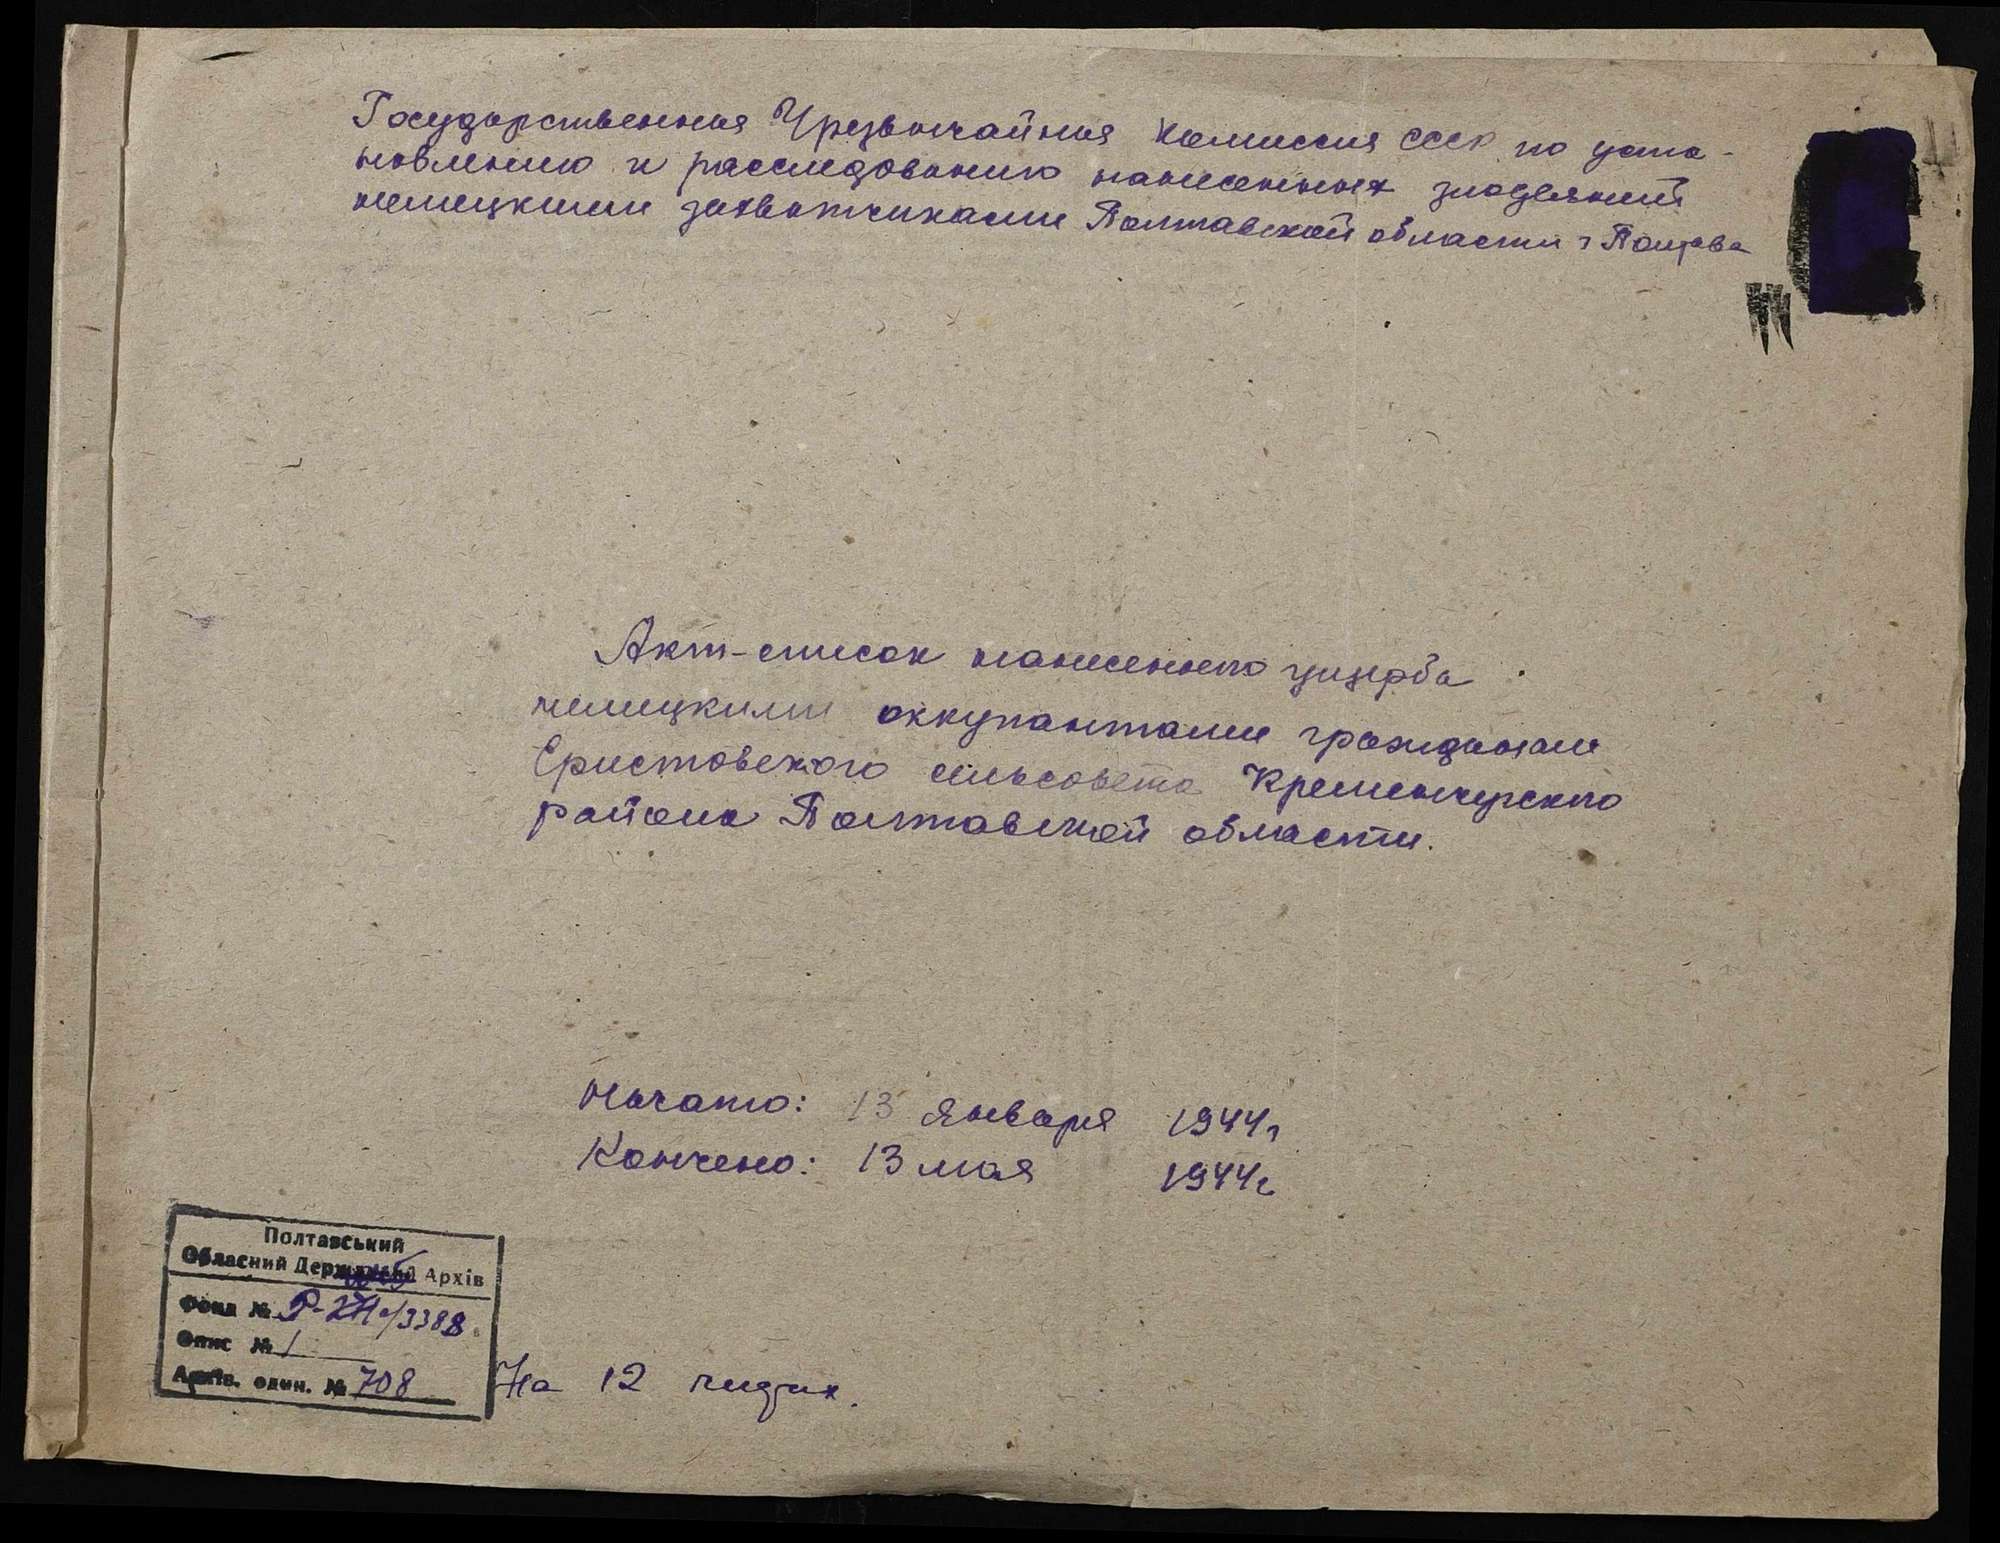 Государственная Чрезвычайная Комиссия СССР по уста-
новлению и расследованию нанесенных злодеяний
немецкими захватчиками Полтавской области г Полтава
Акт-список нанесенного ущерба
немецкими оккупантами гражданам
Еристовского сельсовета Кременчугского
района Полтавской области.
Начато: 13 января 1944г
Кончено: 13 мая 1944г
Полтавський
Обласний Державний Архів
Фонд № Р-3388
Опис № 1
Архів. один. № 708
На 12 лидах.